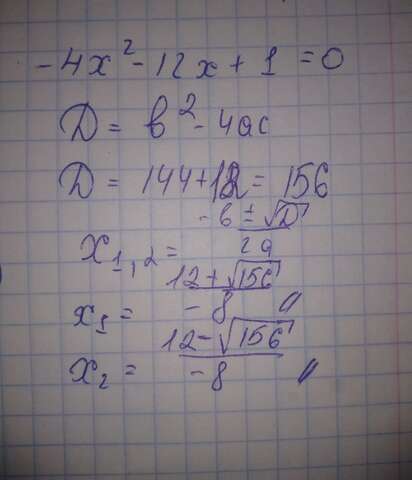 -4x² - 12x + 1 = 0
D = b² - 4ac
D = 144 + 12 = 156
x₁,₂ = (-b ± √D) / 2a
x₁ = (12 + √156) / -8 //
x₂ = (12 - √156) / -8 //